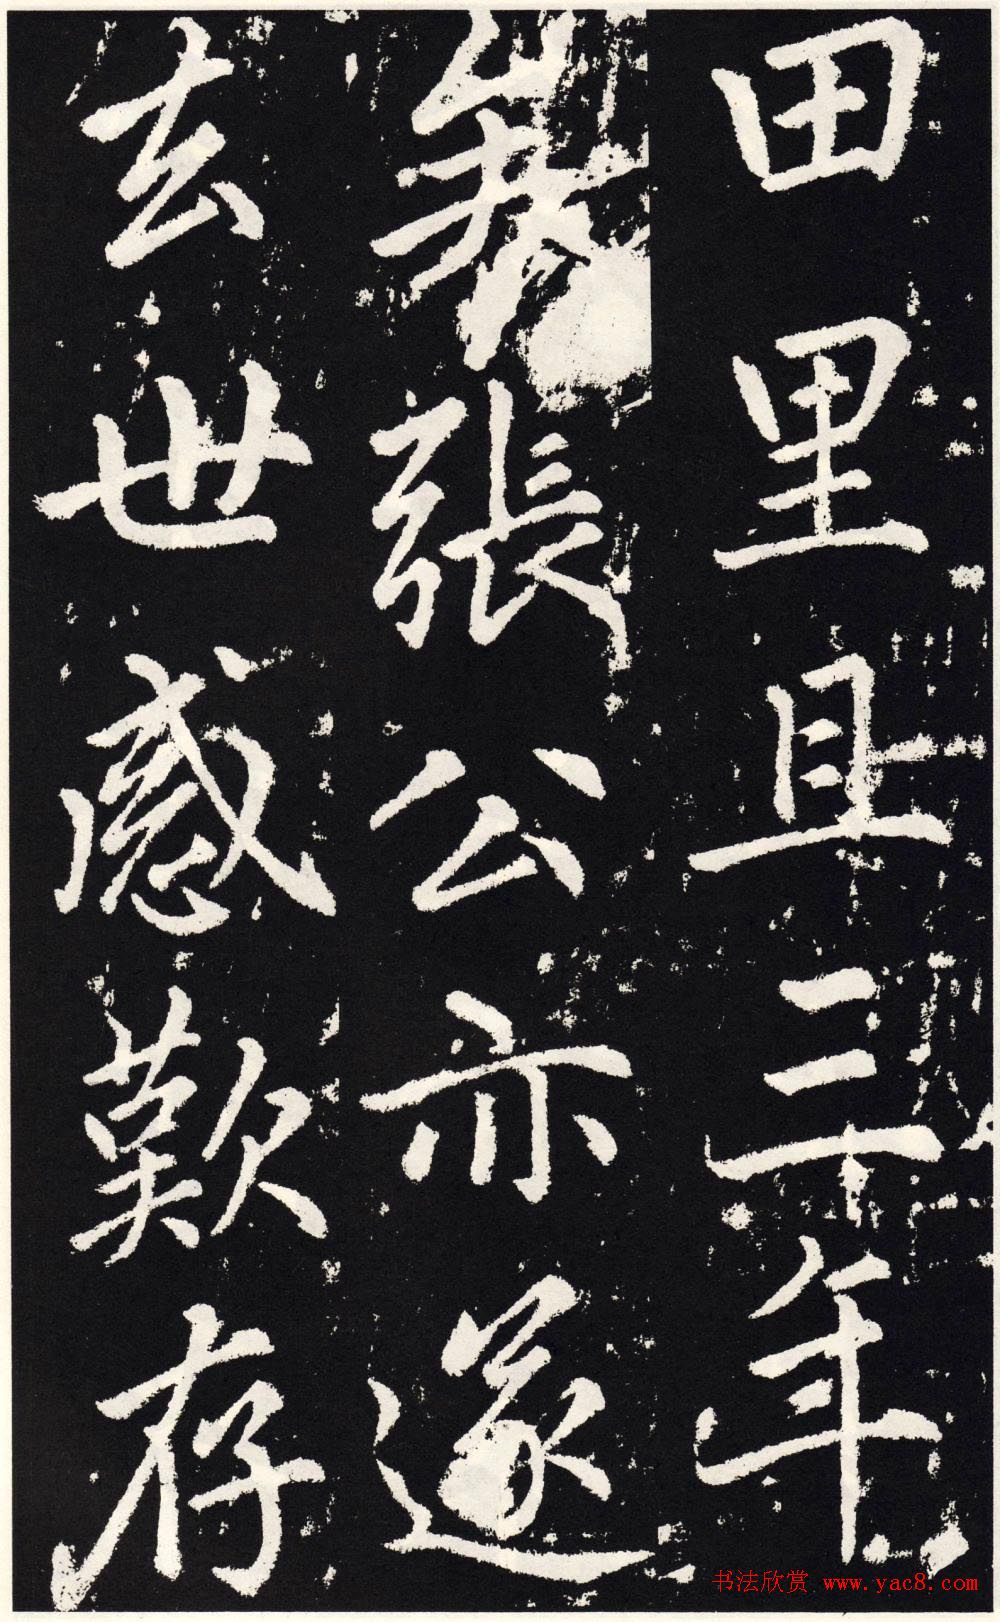 田里且三年
矣張公亦遂
去世感歎存
书法欣赏 www.yac8.com